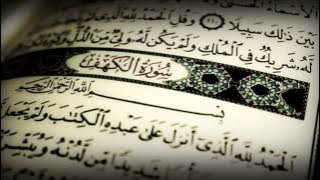 بَيْنَ ذَٰلِكَ سَبِيلًا ﴿١١٠﴾ وَقُلِ الْحَمْدُ لِلَّهِ الَّذِي
لَهُ شَرِيكٌ فِي الْمُلْكِ وَلَمْ يَكُنْ لَهُ وَلِيٌّ مِنَ الذُّلِّ
سُورَةُ الْكَهْفِ
بِسْمِ اللَّهِ الرَّحْمَٰنِ الرَّحِيمِ
الْحَمْدُ لِلَّهِ الَّذِي أَنْزَلَ عَلَىٰ عَبْدِهِ الْكِتَابَ وَلَمْ يَجْعَلْ
شَدِيدًا مِنْ لَدُنْهُ وَيُبَشِّرَ